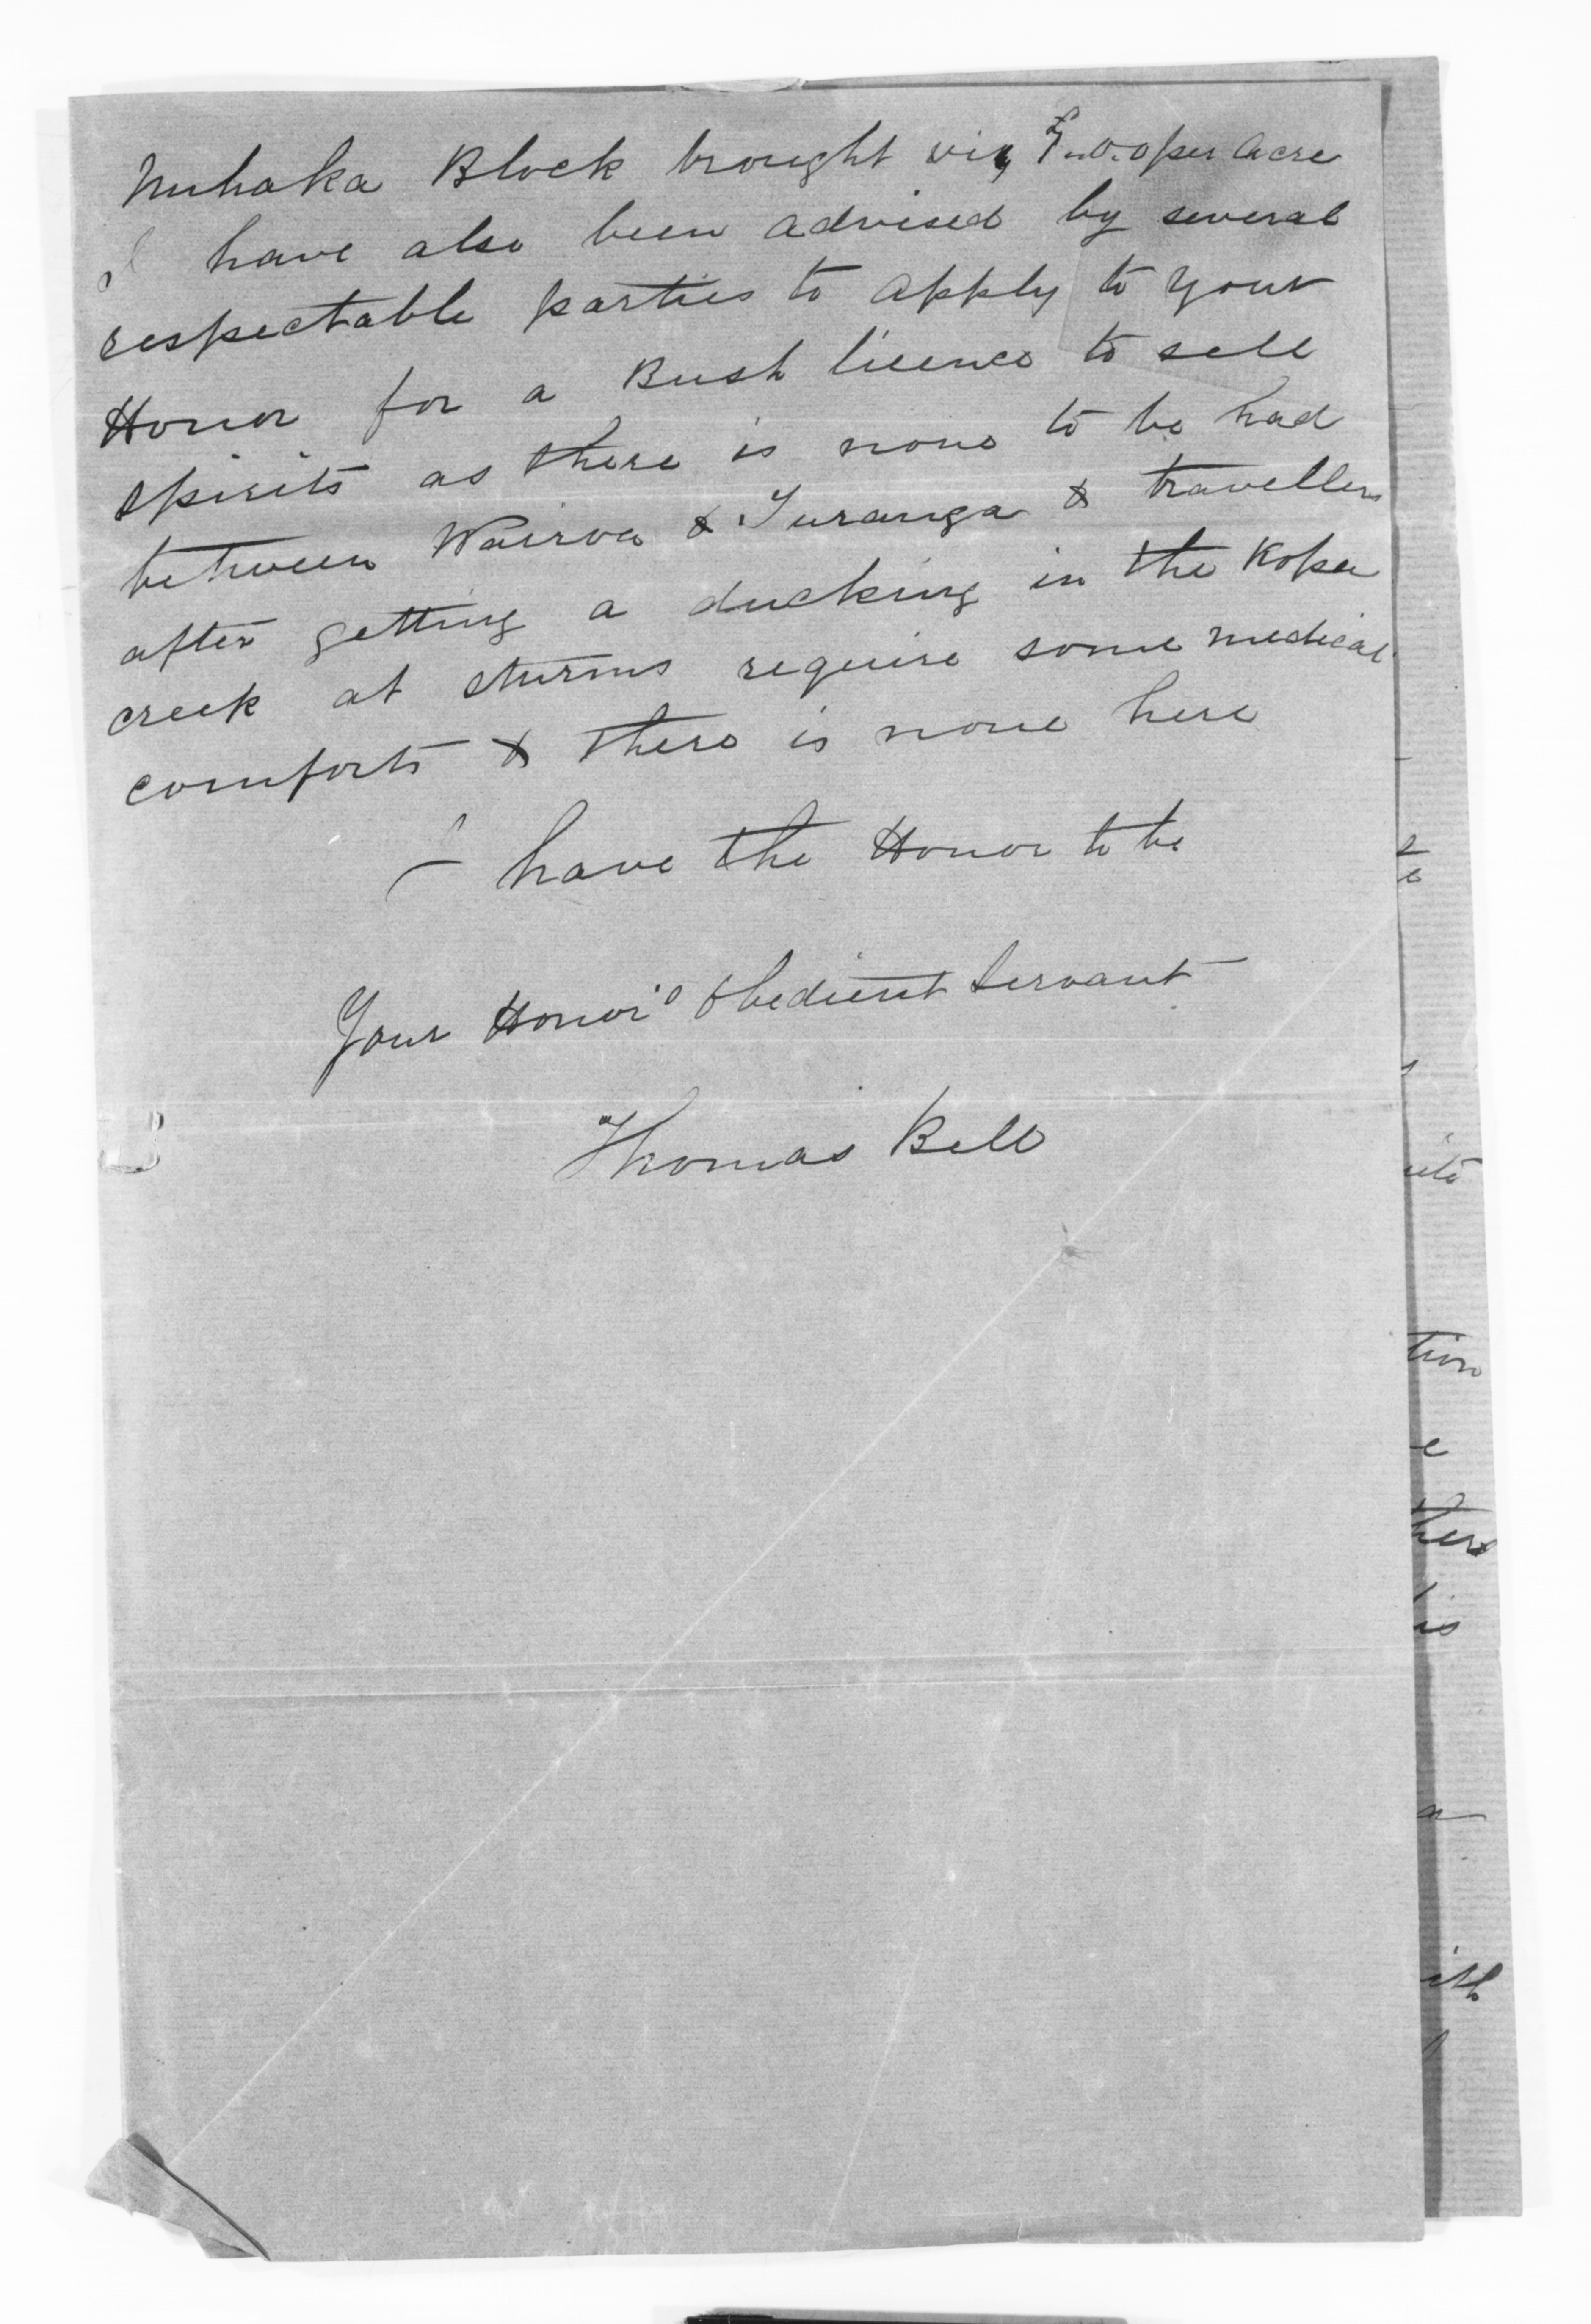 Nuhaka Block brought viz £1.0.0 per acre
I have also been advised by several
respectable parties to apply to your
Honor for a Bush licence to sell
spirits as there is none to be had
between Wairoa & Turanga & travellers
after getting a ducking in the Kopu
creek at sturms require some medical
comforts & there is none here
I have the Honor to be
Your Honor's Obedient Servant
Thomas Bell
to
tion
e
ther
is
a
ith